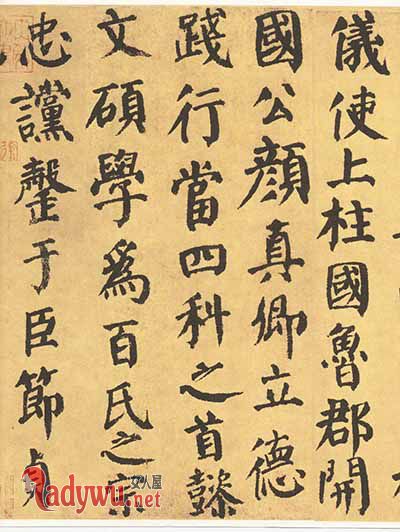 儀使上柱國魯郡開
國公顏真卿立德
踐行當四科之首懿
文碩學爲百氏之宗
忠讜罄于臣節貞
女人屋
Ladywu.net